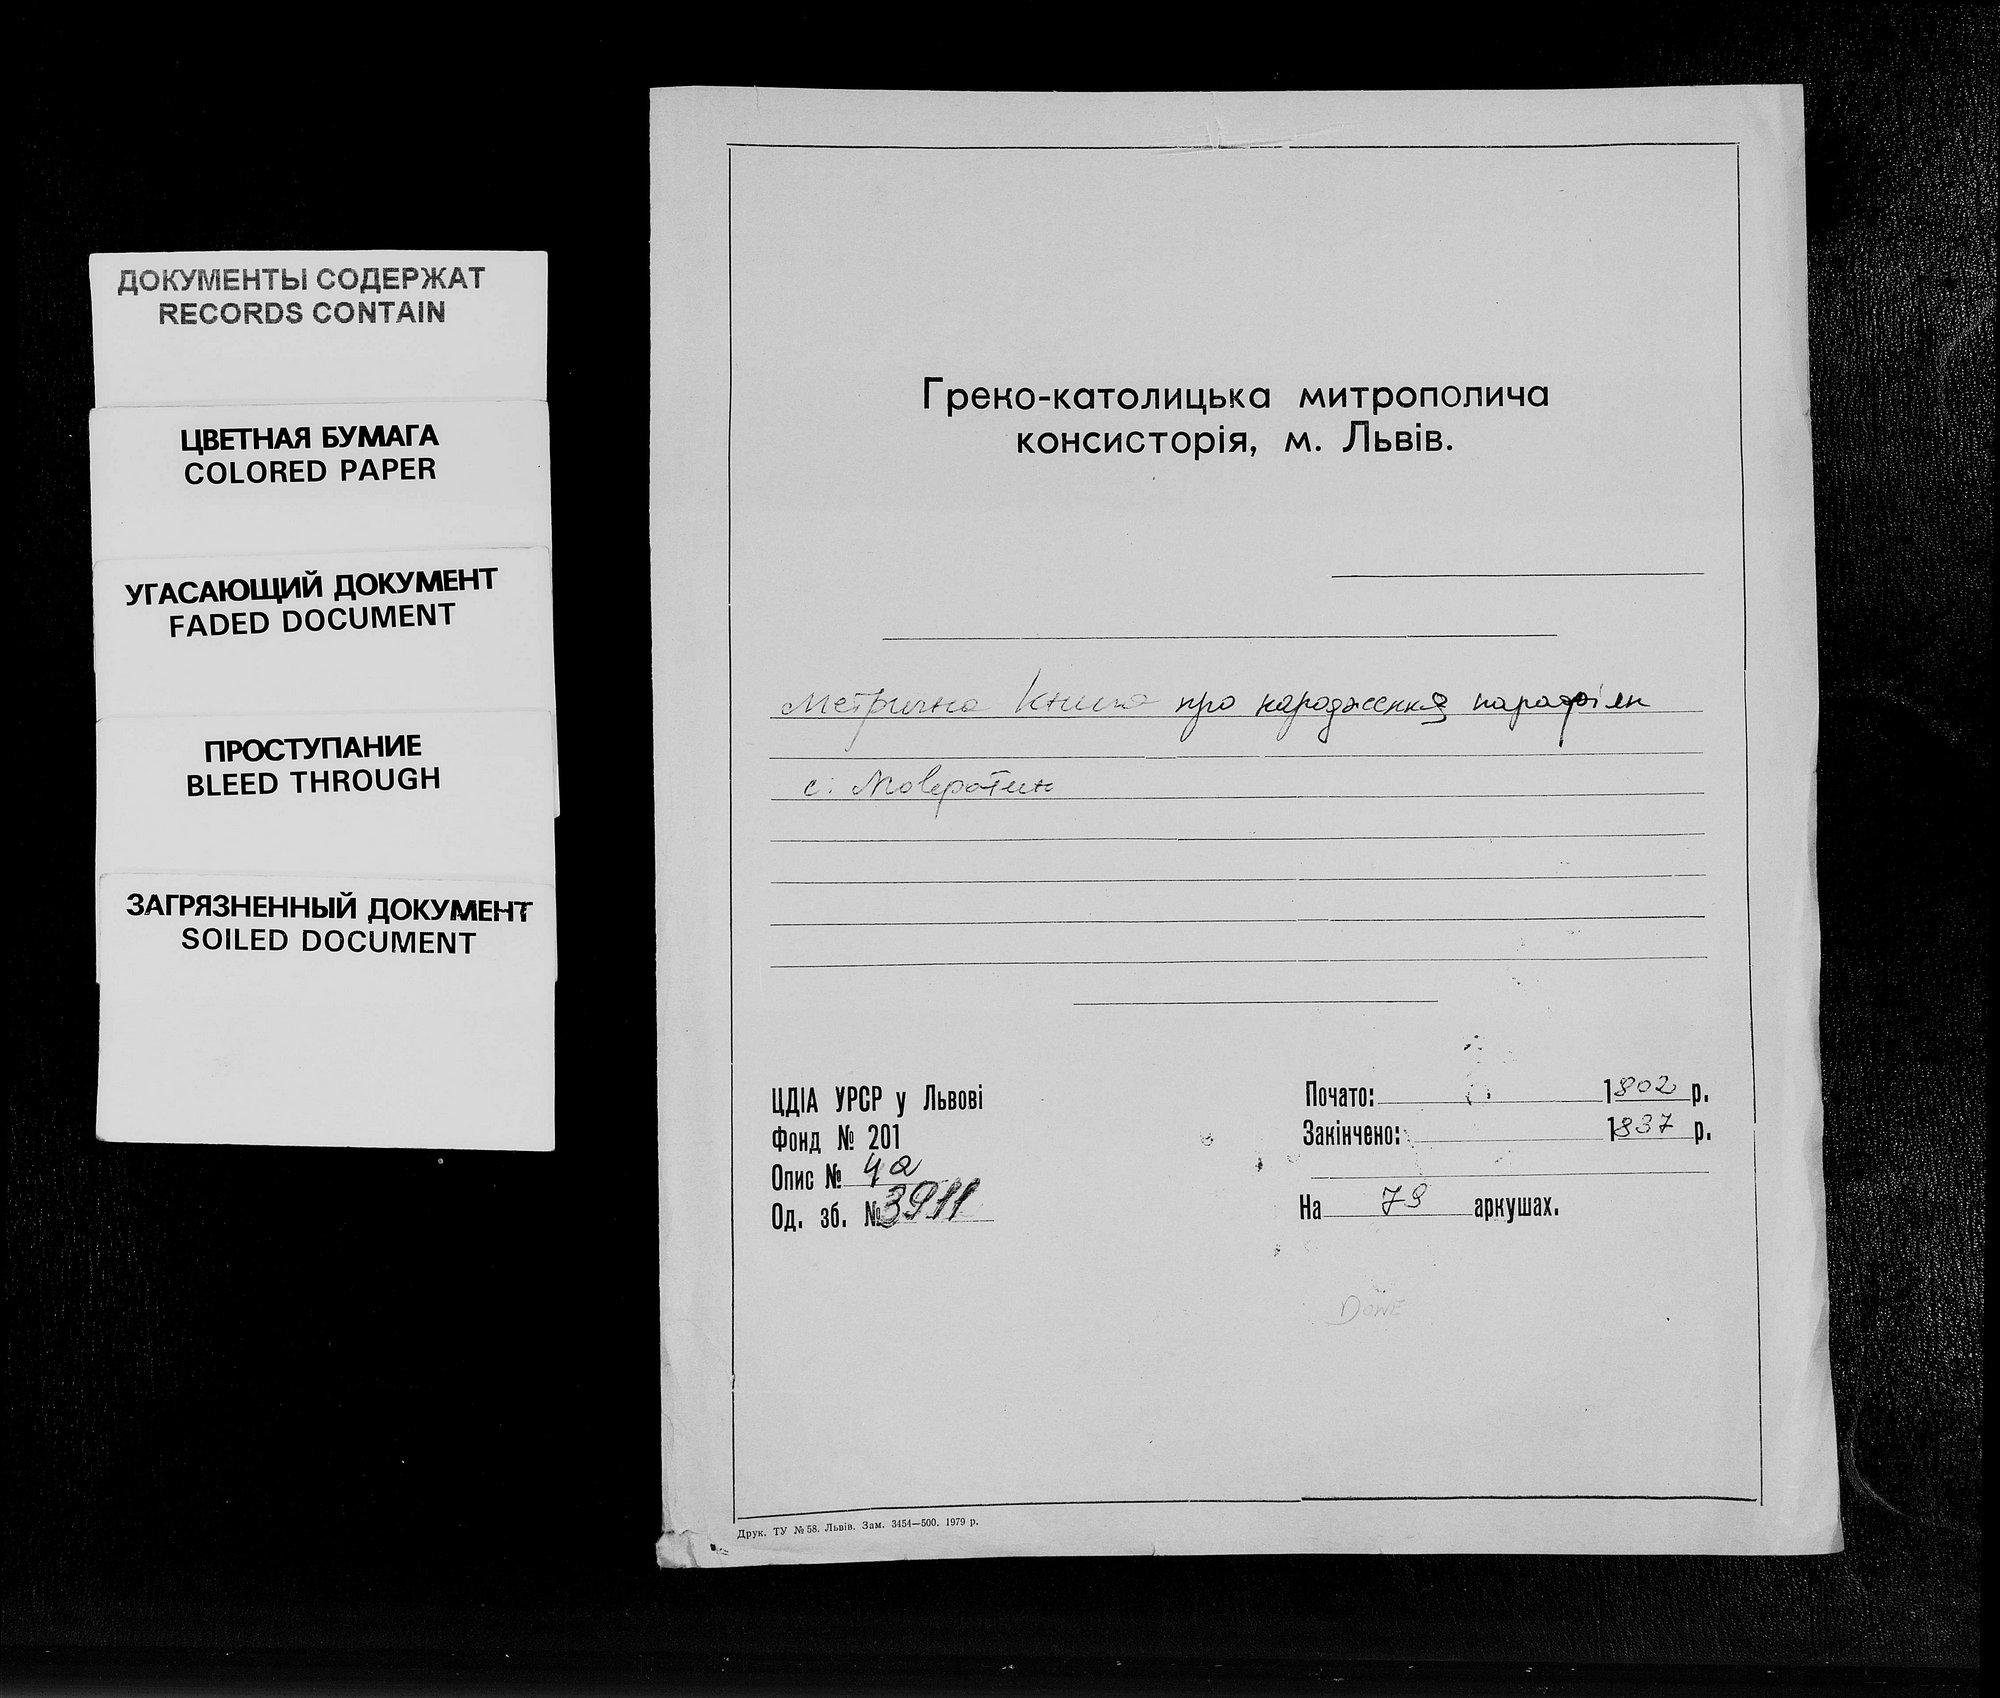 ДОКУМЕНТЫ СОДЕРЖАТ
RECORDS CONTAIN
ЦВЕТНАЯ БУМАГА
COLORED PAPER
УГАСАЮЩИЙ ДОКУМЕНТ
FADED DOCUMENT
ПРОСТУПАНИЕ
BLEED THROUGH
ЗАГРЯЗНЕННЫЙ ДОКУМЕНТ
SOILED DOCUMENT
Греко-католицька митрополича
консисторія, м. Львів.
Метрична книга про народження парафіян
с. Мовротин
ЦДІА УРСР у Львові
Фонд № 201
Опис № 4а
Од. зб. № 3911
Почато: 1802 р.
Закінчено: 1837 р.
На 79 аркушах.
DONE
Друк. ТУ № 58. Львів. Зам. 3454—500. 1979 р.